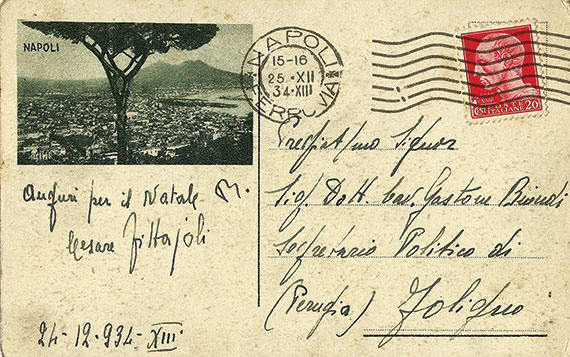 NAPOLI
NAPOLI
15-16
25.XII
34.XIII
FERROVIA
POSTE ITALIANE 20
Auguri per il Natale
Cesare
24-12-934-XIII
Sig. Dott. Cav. Gastone Biondi
Segretario Politico di
(Perugia) Foligno